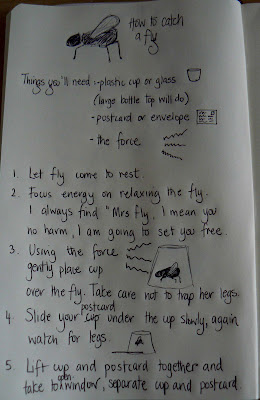 How to catch
a fly
Things you'll need :- plastic cup or glass
(large bottle top will do)
- postcard or envelope
- the force
1. Let fly come to rest.
2. Focus energy on relaxing the fly.
I always find "Mrs fly, I mean you
no harm, I am going to set you free.
3. Using the force
gently place cup
over the fly. Take care not to trap her legs.
4. Slide your postcard cup under the up slowly, again
watch for legs.
5. Lift cup and postcard together and
take to open window, separate cup and postcard.